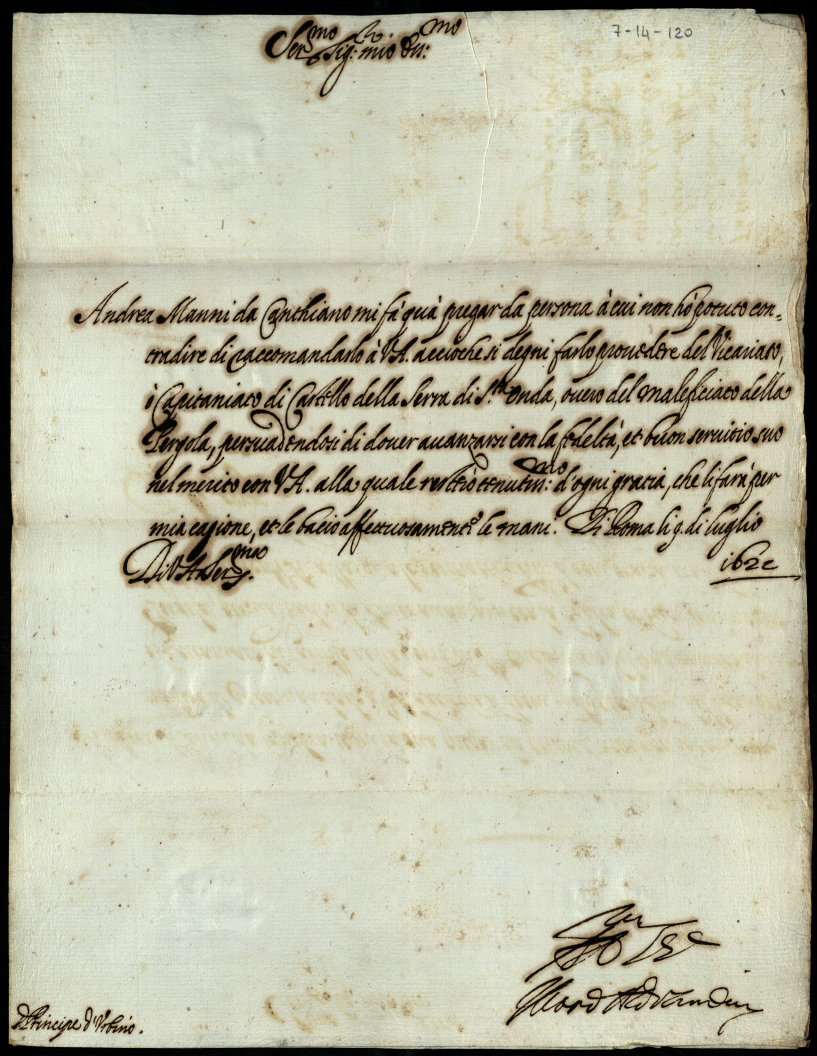 7-14-120
Ser.mo Sig: mio oss:mo
Andrea Manni da Canthiano mi fà quà pregar da persona à cui non hò potuto con=
tradire di raccomandarlo à V.A. accioche si degni farlo provedere del Vicariato,
ò Capitaniato di Castello della Serra di S.ta Onda, overo del maleficiato della
Pergola, persuadendosi di dover avanzarsi con la fedeltà, et buon servitio suo
nel merito con V.A. alla quale restarò tenutiss:mo d'ogni gratia, che li farà per
mia cagione, et le bacio affettuosamente le mani. Di Roma li 9. di luglio
1622
Di V. A. Ser.ma
Aldobrandino
Principe d'Urbino.